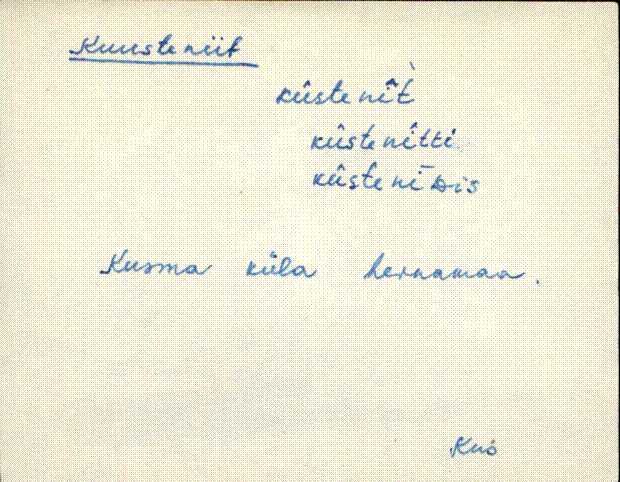 Kuusteniit
kûste nît̀
kûstenîtti
kûste nīDis
Kusma küla heinamaa.
Kuo